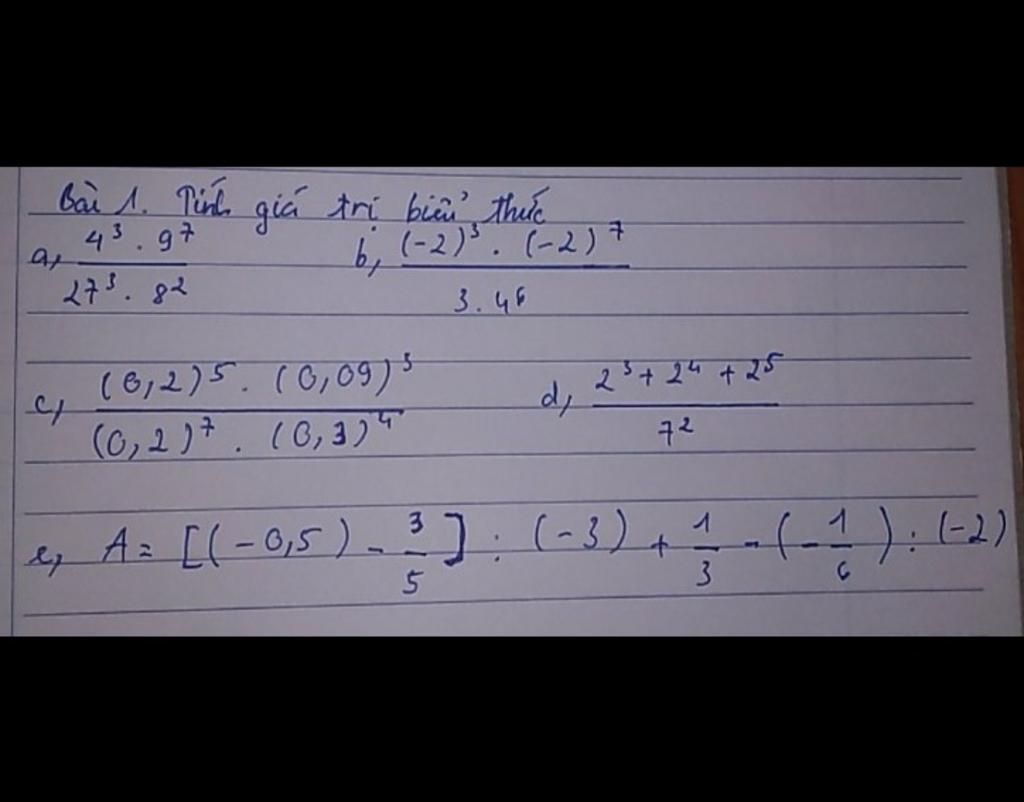 Bài 1. Tính giá trị biểu thức
a, \frac{4^3 . 9^7}{27^3 . 8^2} b, \frac{(-2)^3 . (-2)^7}{3 . 4^6}
c, \frac{(0,2)^5 . (0,09)^3}{(0,2)^7 . (0,3)^4} d, \frac{2^3 + 2^4 + 2^5}{7^2}
e, A = [(-0,5) - \frac{3}{5}] : (-3) + \frac{1}{3} - (-\frac{1}{6}) : (-2)